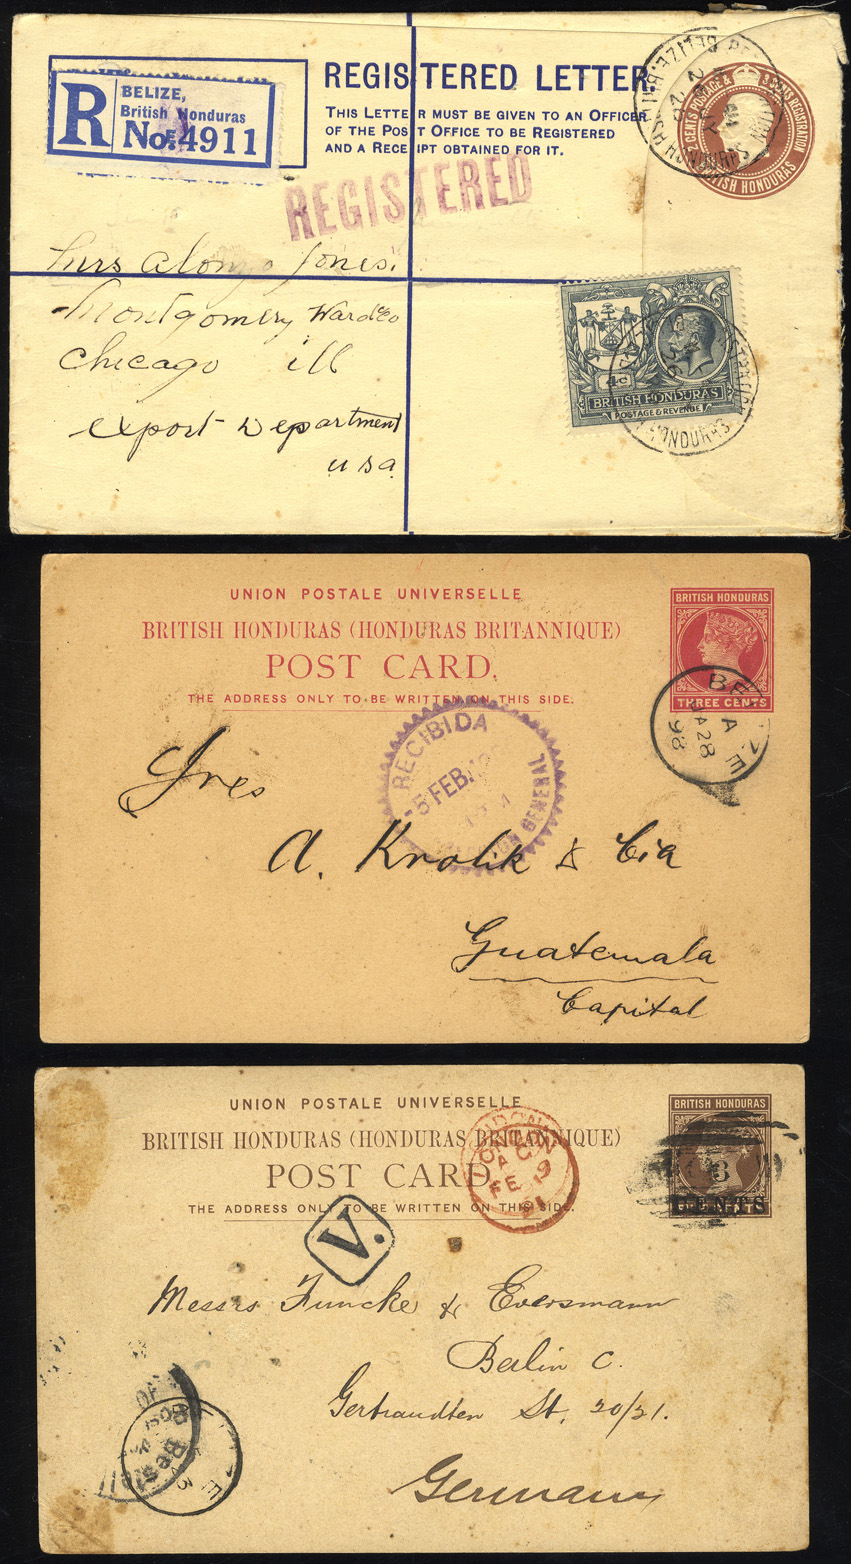 REGISTERED LETTER.
THIS LETTER MUST BE GIVEN TO AN OFFICER
OF THE POST OFFICE TO BE REGISTERED
AND A RECEIPT OBTAINED FOR IT.
R
BELIZE,
British Honduras
No. 4911
2 CENTS POSTAGE & 3 CENTS REGISTRATION
BRITISH HONDURAS
REGISTERED
Mrs Alonzo Jones.
Montgomery Ward & Co
Chicago ill
Export Department
usa
4c
BRITISH HONDURAS
POSTAGE & REVENUE
HONDURAS
UNION POSTALE UNIVERSELLE
BRITISH HONDURAS (HONDURAS BRITANNIQUE)
POST CARD.
THE ADDRESS ONLY TO BE WRITTEN ON THIS SIDE.
BRITISH HONDURAS
THREE CENTS
BELIZE
A
JA 28
98
RECIBIDA
5 FEB.
GENERAL
Sres
A. Krolik & Cia
Guatemala
Capital
UNION POSTALE UNIVERSELLE
BRITISH HONDURAS (HONDURAS BRITANNIQUE)
POST CARD.
THE ADDRESS ONLY TO BE WRITTEN ON THIS SIDE.
BRITISH HONDURAS
3
CENTS
LONDON
FE 19
91
V.
Messrs Funcke & Eversmann
Berlin C.
Gertraudten St. 20/21.
Germany